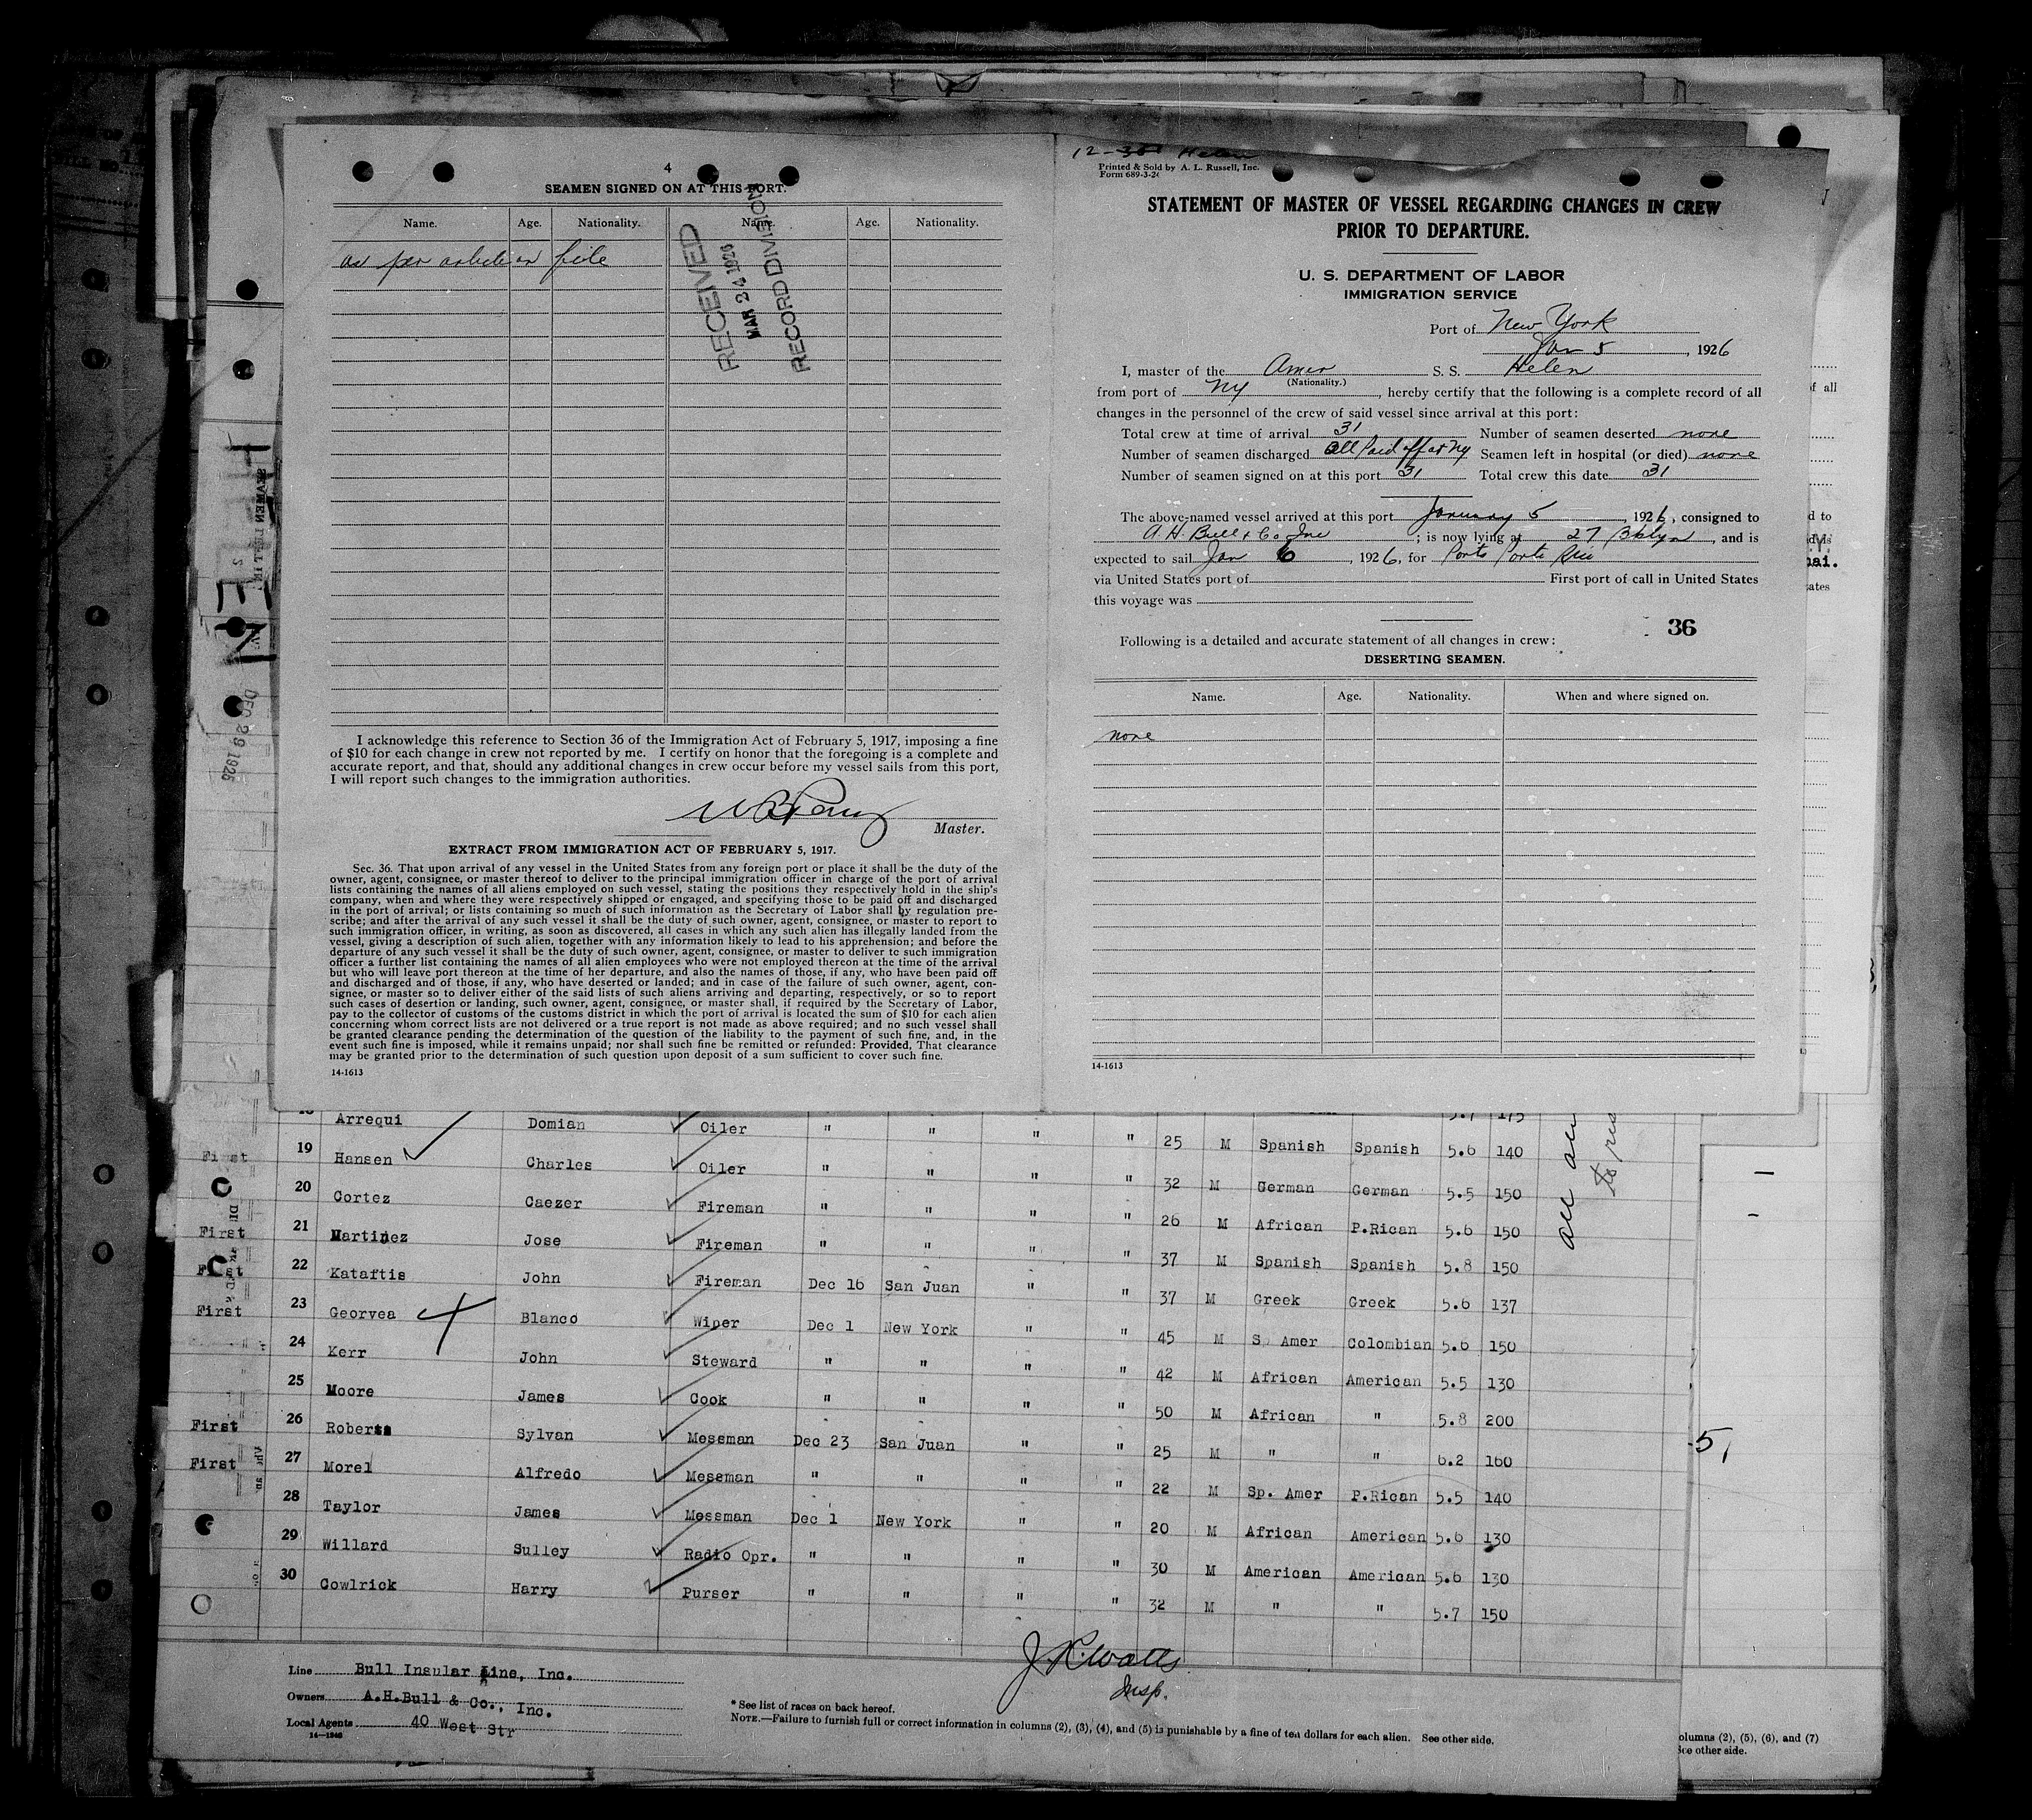 4
SEAMEN SIGNED ON AT THIS PORT.
Name. Age. Nationality. Name. Age. Nationality.
as per file
RECEIVED
MAR 24 1926
RECORD DIVISION
I acknowledge this reference to Section 36 of the Immigration Act of February 5, 1917, imposing a fine
of $10 for each change in crew not reported by me. I certify on honor that the foregoing is a complete and
accurate report, and that, should any additional changes in crew occur before my vessel sails from this port,
I will report such changes to the immigration authorities.
Master.
EXTRACT FROM IMMIGRATION ACT OF FEBRUARY 5, 1917.
Sec. 36. That upon arrival of any vessel in the United States from any foreign port or place it shall be the duty of the
owner, agent, consignee, or master thereof to deliver to the principal immigration officer in charge of the port of arrival
lists containing the names of all aliens employed on such vessel, stating the positions they respectively hold in the ship's
company, when and where they were respectively shipped or engaged, and specifying those to be paid off and discharged
in the port of arrival; or lists containing so much of such information as the Secretary of Labor shall by regulation pre-
scribe; and after the arrival of any such vessel it shall be the duty of such owner, agent, consignee, or master to report to
such immigration officer, in writing, as soon as discovered, all cases in which any such alien has illegally landed from the
vessel, giving a description of such alien, together with any information likely to lead to his apprehension; and before the
departure of any such vessel it shall be the duty of such owner, agent, consignee, or master to deliver to such immigration
officer a further list containing the names of all alien employees who were not employed thereon at the time of the arrival
but who will leave port thereon at the time of her departure, and also the names of those, if any, who have been paid off
and discharged and of those, if any, who have deserted or landed; and in case of the failure of such owner, agent, con-
signee, or master so to deliver either of the said lists of such aliens arriving and departing, respectively, or so to report
such cases of desertion or landing, such owner, agent, consignee, or master shall, if required by the Secretary of Labor,
pay to the collector of customs of the customs district in which the port of arrival is located the sum of $10 for each alien
concerning whom correct lists are not delivered or a true report is not made as above required; and no such vessel shall
be granted clearance pending the determination of the question of the liability to the payment of such fine, and, in the
event such fine is imposed, while it remains unpaid; nor shall such fine be remitted or refunded: Provided, That clearance
may be granted prior to the determination of such question upon deposit of a sum sufficient to cover such fine.
14-1613
12-30 Helen
Printed & Sold by A. L. Russell, Inc.
Form 689-3-24
STATEMENT OF MASTER OF VESSEL REGARDING CHANGES IN CREW
PRIOR TO DEPARTURE.
U. S. DEPARTMENT OF LABOR
IMMIGRATION SERVICE
Port of New York
Jan 5, 1926
I, master of the Amer S. S. Helen
(Nationality.)
from port of NY, hereby certify that the following is a complete record of all
changes in the personnel of the crew of said vessel since arrival at this port:
Total crew at time of arrival 31 Number of seamen deserted none
Number of seamen discharged all Paid off at NY Seamen left in hospital (or died) none
Number of seamen signed on at this port 31 Total crew this date 31
The above-named vessel arrived at this port January 5, 1926, consigned to
A. H. Bull & Co Inc; is now lying at 27 Bklyn, and is
expected to sail Jan 6, 1926, for Ports Porto Rico
via United States port of First port of call in United States
this voyage was
36
Following is a detailed and accurate statement of all changes in crew:
DESERTING SEAMEN.
Name. Age. Nationality. When and where signed on.
none
14-1613
HELEN
DEC 29 1925
18 Arrequi Domian Oiler " " " " 25 M Spanish Spanish 5.6 140
First 19 Hansen Charles Oiler " " " " 32 M German German 5.5 150
20 Cortez Caezer Fireman " " " " 26 M African P.Rican 5.6 150
First 21 Martinez Jose Fireman " " " " 37 M Spanish Spanish 5.8 150
First 22 Kataftis John Fireman Dec 16 San Juan " " 37 M Greek Greek 5.6 137
First 23 Georvea Blanco Wiper Dec 1 New York " " 45 M S. Amer Colombian 5.6 150
24 Kerr John Steward " " " " 42 M African American 5.5 130
25 Moore James Cook " " " " 50 M African " 5.8 200
First 26 Roberts Sylvan Messman Dec 23 San Juan " " 25 M " " 6.2 160
First 27 Morel Alfredo Messman " " " " 22 M Sp. Amer P.Rican 5.5 140
28 Taylor James Messman Dec 1 New York " " 20 M African American 5.6 130
29 Willard Sulley Radio Opr. " " " " 30 M American American 5.6 130
30 Cowlrick Harry Purser " " " " 32 M " " 5.7 150
Line Bull Insular Line, Inc.
Owners A.H.Bull & Co., Inc.
Local Agents 40 West Str
14-1240
J R Watts
Insp.
* See list of races on back hereof.
NOTE.—Failure to furnish full or correct information in columns (2), (3), (4), and (5) is punishable by a fine of ten dollars for each alien. See other side.
columns (2), (5), (6), and (7)
See other side.